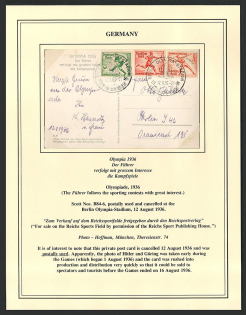 GERMANY
OLYMPIA 1936
Der Führer
verfolgt mit grossem Interesse
die Kampfspiele
Olympia 1936
Der Führer
verfolgt mit grossem Interesse
die Kampfspiele
Olympiade, 1936
(The Führer follows the sporting contests with great interest.)
Scott Nos. B84-6, postally used and cancelled at the
Berlin Olympia-Stadium, 12 August 1936.
"Zum Verkauf auf dem Reichssportfelde freigegeben durch den Reichssportverlag"
("For sale on the Reichs Sports Field by permission of the Reichs Sport Publishing House.")
Photo - Hoffmann, München, Theresienstr. 74
It is of interest to note that this private post card is cancelled 12 August 1936 and was
postally used. Apparently, the photo of Hitler and Göring was taken early during
the Games (which began 1 August 1936) and the card was rushed into
production and distribution very quickly so that it could be sold to
spectators and tourists before the Games ended on 16 August 1936.